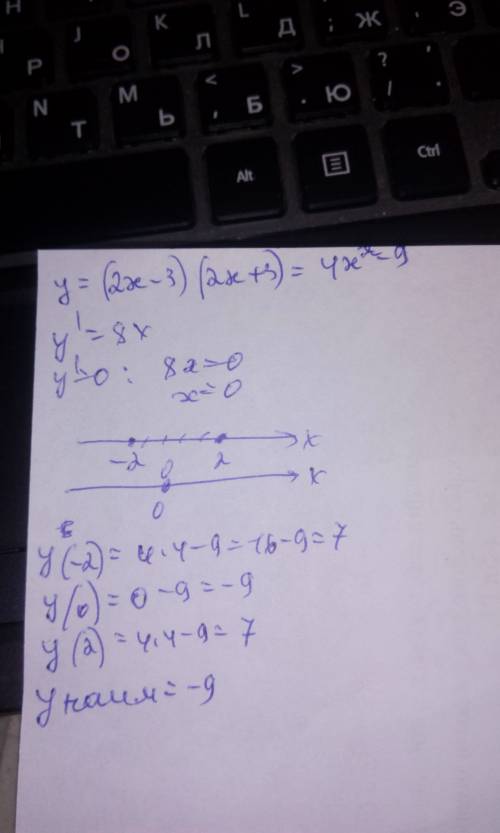 H
J О
K Л
L Д
: ; Ж
Э
Р
N Т
M Ь
< , Б
> . Ю
? /
Alt
Ctrl
y = (2x-3)(2x+3) = 4x²-9
y' = 8x
y'=0 : 8x=0
x=0
x
-2 2
x
0
y(-2) = 4·4-9=16-9=7
y(0) = 0-9=-9
y(2) = 4·4-9=7
y наим = -9